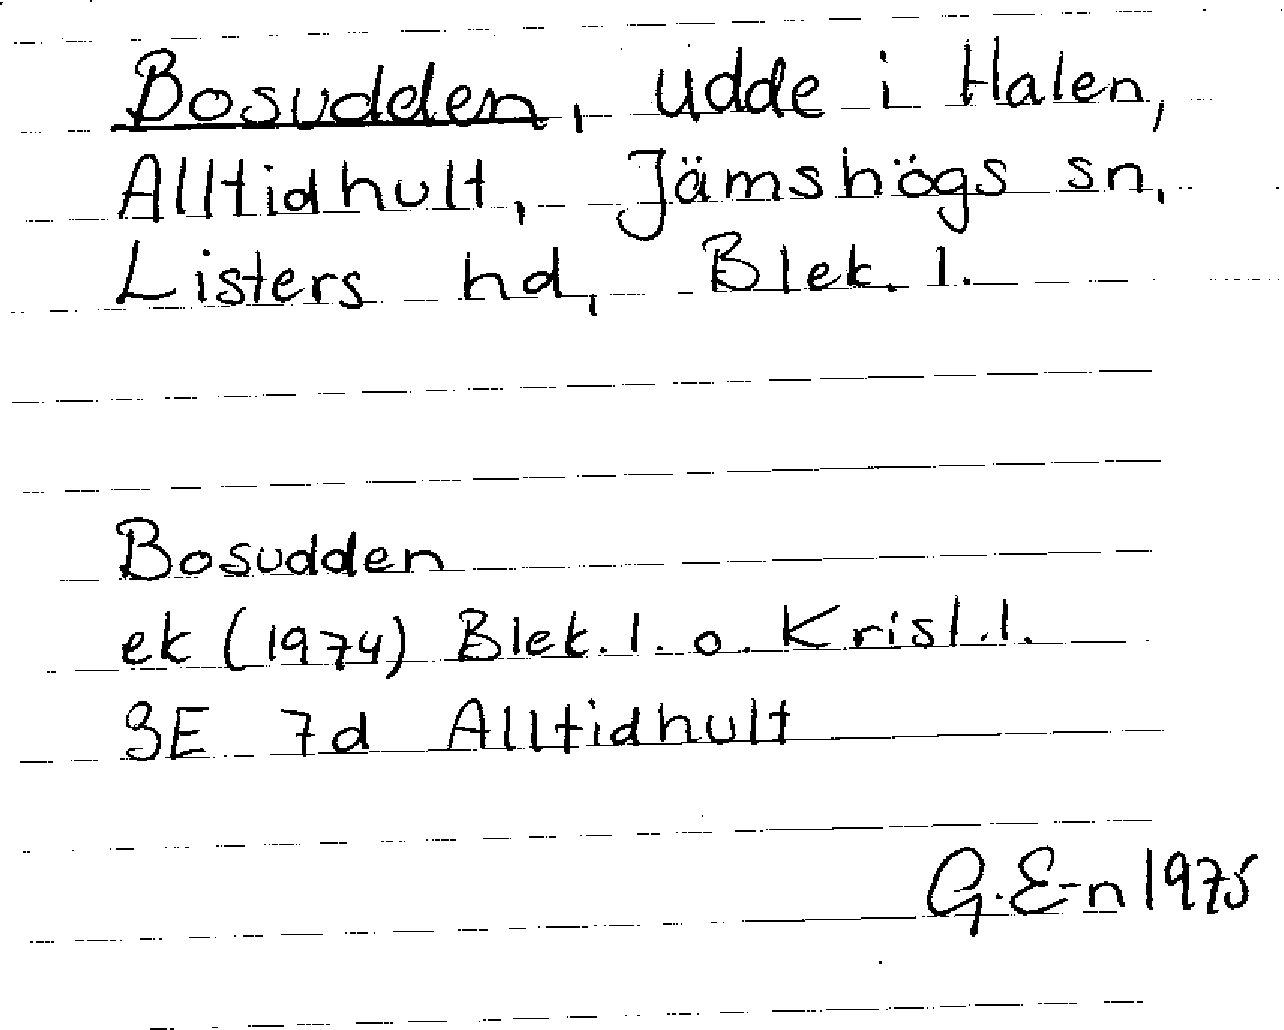 Bosudden, udde i Halen,
Alltidhult, Jämshögs sn,
Listers hd, Blek. l.
Bosudden
ek (1974) Blek. l. o. Krist. l.
3E 7d Alltidhult
G. E-n 1975